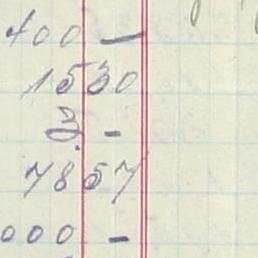 400 —
15 30
3. -
78 57
000 -